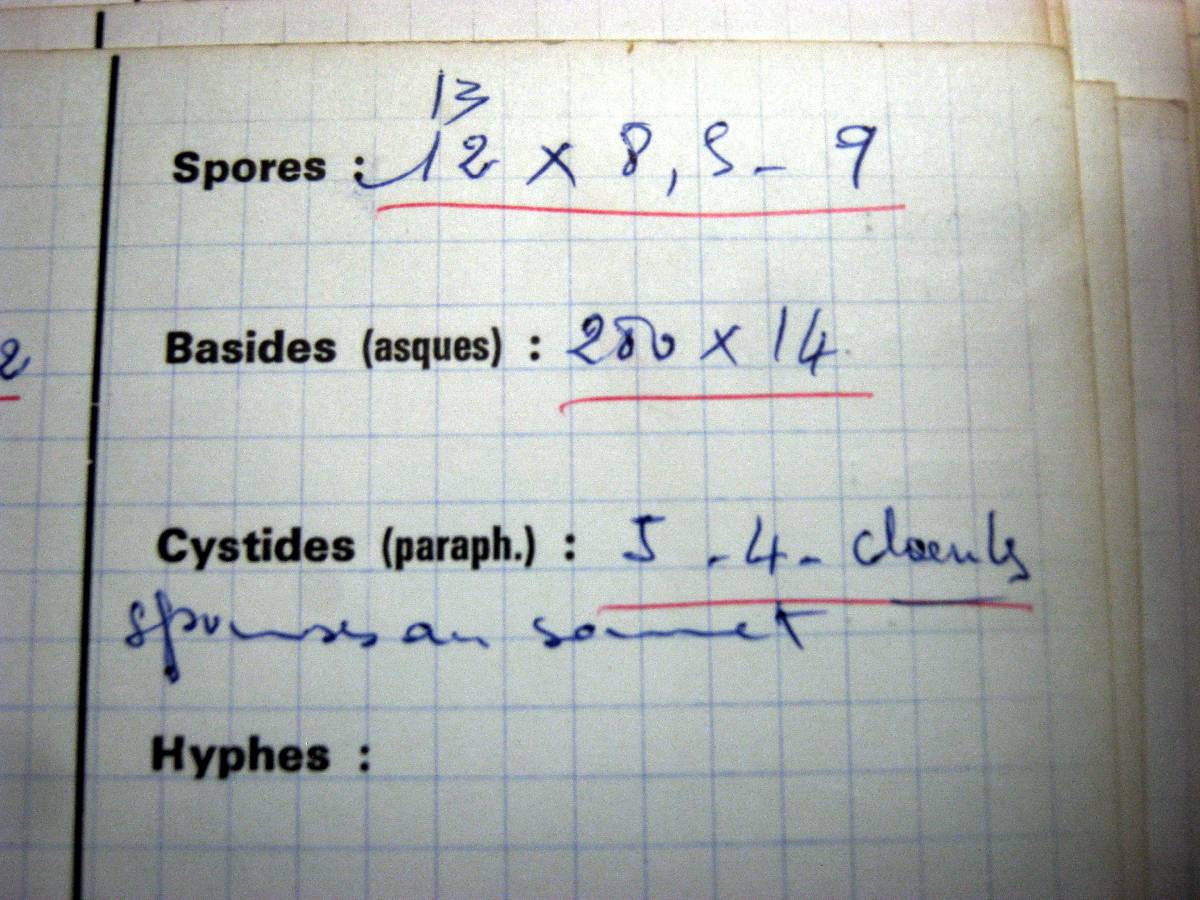 13
Spores : 12 x 8,5 - 9
2
Basides (asques) : 280 x 14
Cystides (paraph.) : 5 - 4 -
au sommet
Hyphes :